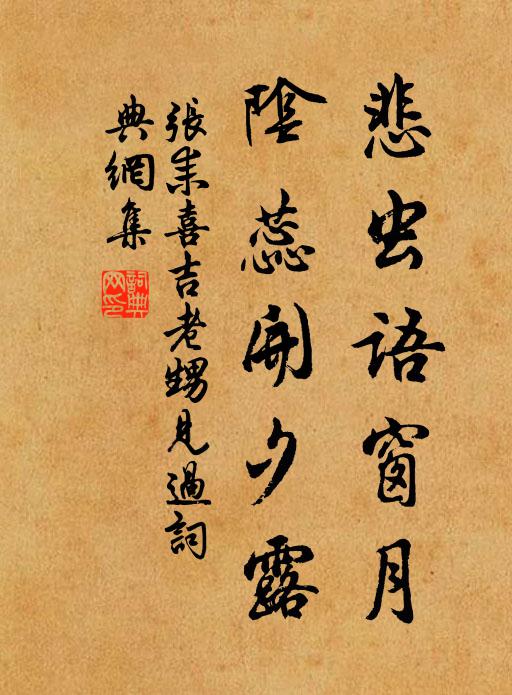 悲虫语窗月
陰蕊開夕露
張耒喜吉老甥見過詞
典網集
詞典网印